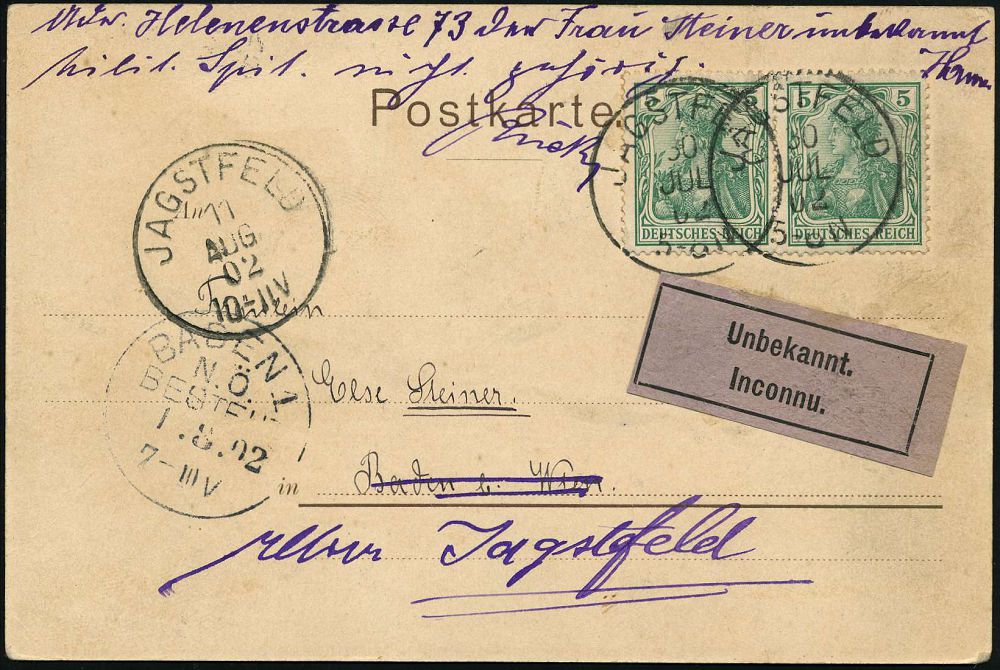 Helenenstrasse 73 der Frau Steiner unbekannt
milit. Spit. nicht gehörig.
Postkarte.
Zurück
5 5
JAGSTFELD
30
JUL
02
5-6N
JAGSTFELD
30
JUL
02
5-6N
DEUTSCHES REICH
DEUTSCHES REICH
JAGSTFELD
An
11
AUG
02
10-11V
Fräulein
BADEN 1
N.Ö.
BESTELLT
1.8.02
7-III V
Unbekannt.
Inconnu.
Else Steiner.
in Baden b. Wien.
retour Jagstfeld